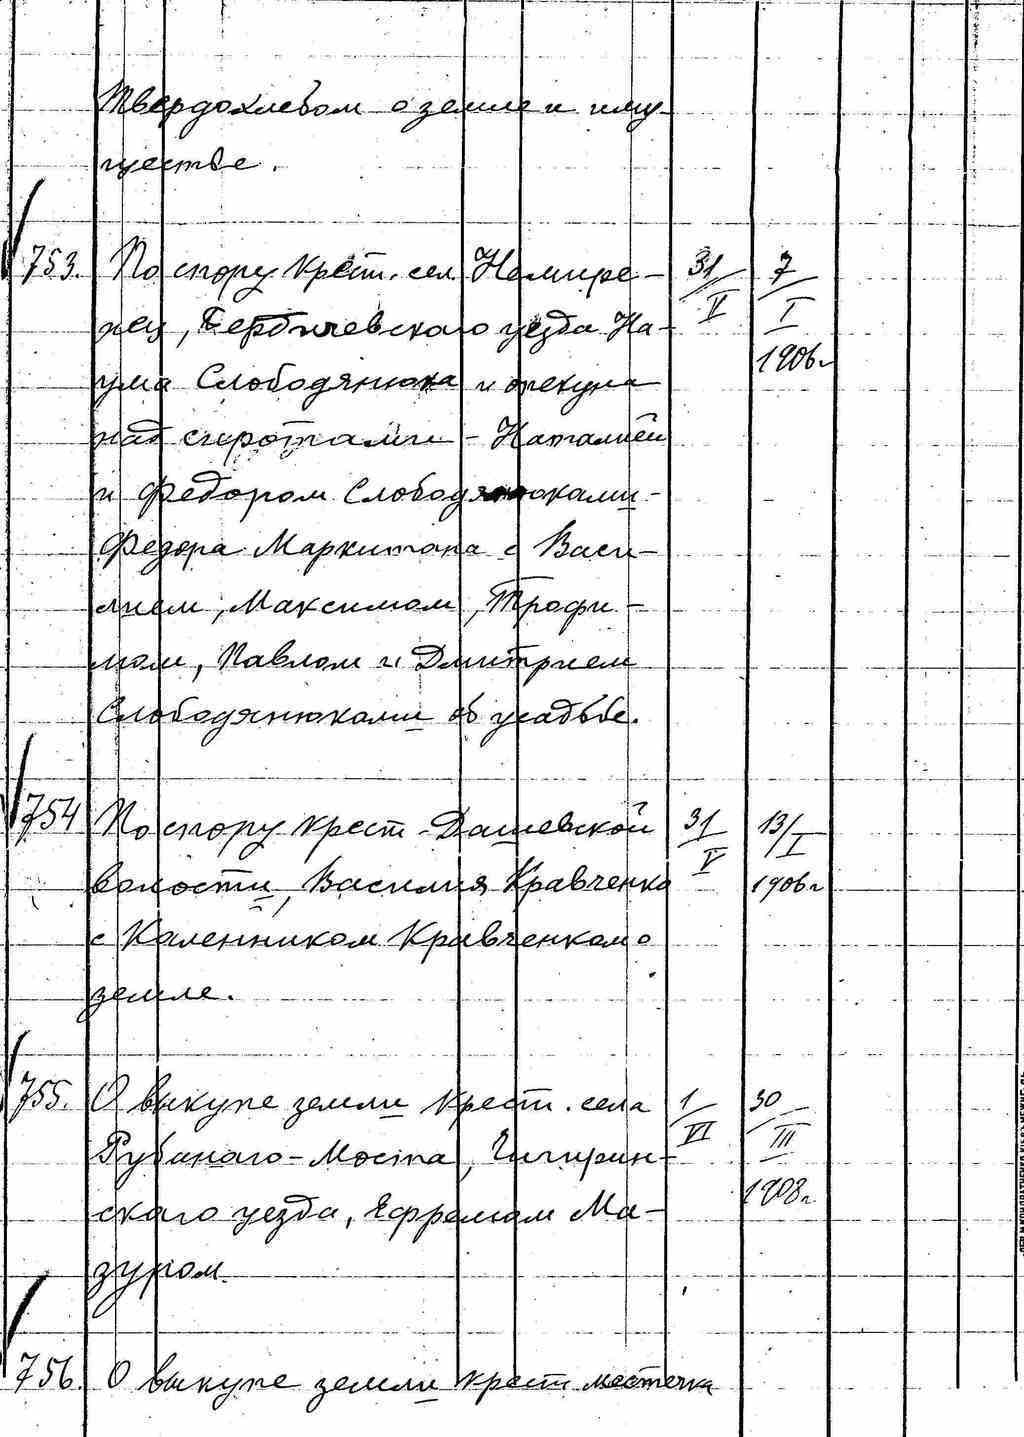 Твердохлебом о земле и иму-
ществе.
753. По спору крест. сел. Немире- 31/V 7/I
нец, Бердичевского уезда На- 1906 г
ума Слободянюка и опекуна
над сиротами - Наталией
и Федором Слободянюками -
Федора Маркитана с Васи-
лием, Максимом, Трофи-
мом, Павлом и Дмитрием
Слободянюками об усадьбе.
754 По спору крест. Дашевской 31/V 13/I
волости, Василия Кравченко 1906 г
с Каленником Кравченком о
земле.
755. О выкупе земли крест. села 1/VI 30/III
Рубаного-Моста, Чигирин-
ского уезда, Ефремом Ма- 1908 г.
зуром.
756. О выкупе земли крест. местечка